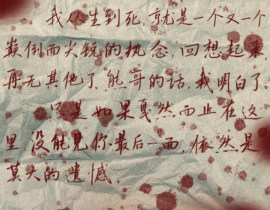 我从生到死,就是一个又一个
颠倒而尖锐的执念。回想起来
再无其他了。熊哥的话,我明白了。
只是如果戛然而止在这
里,没能见你最后一面,依然是
莫大的遗憾